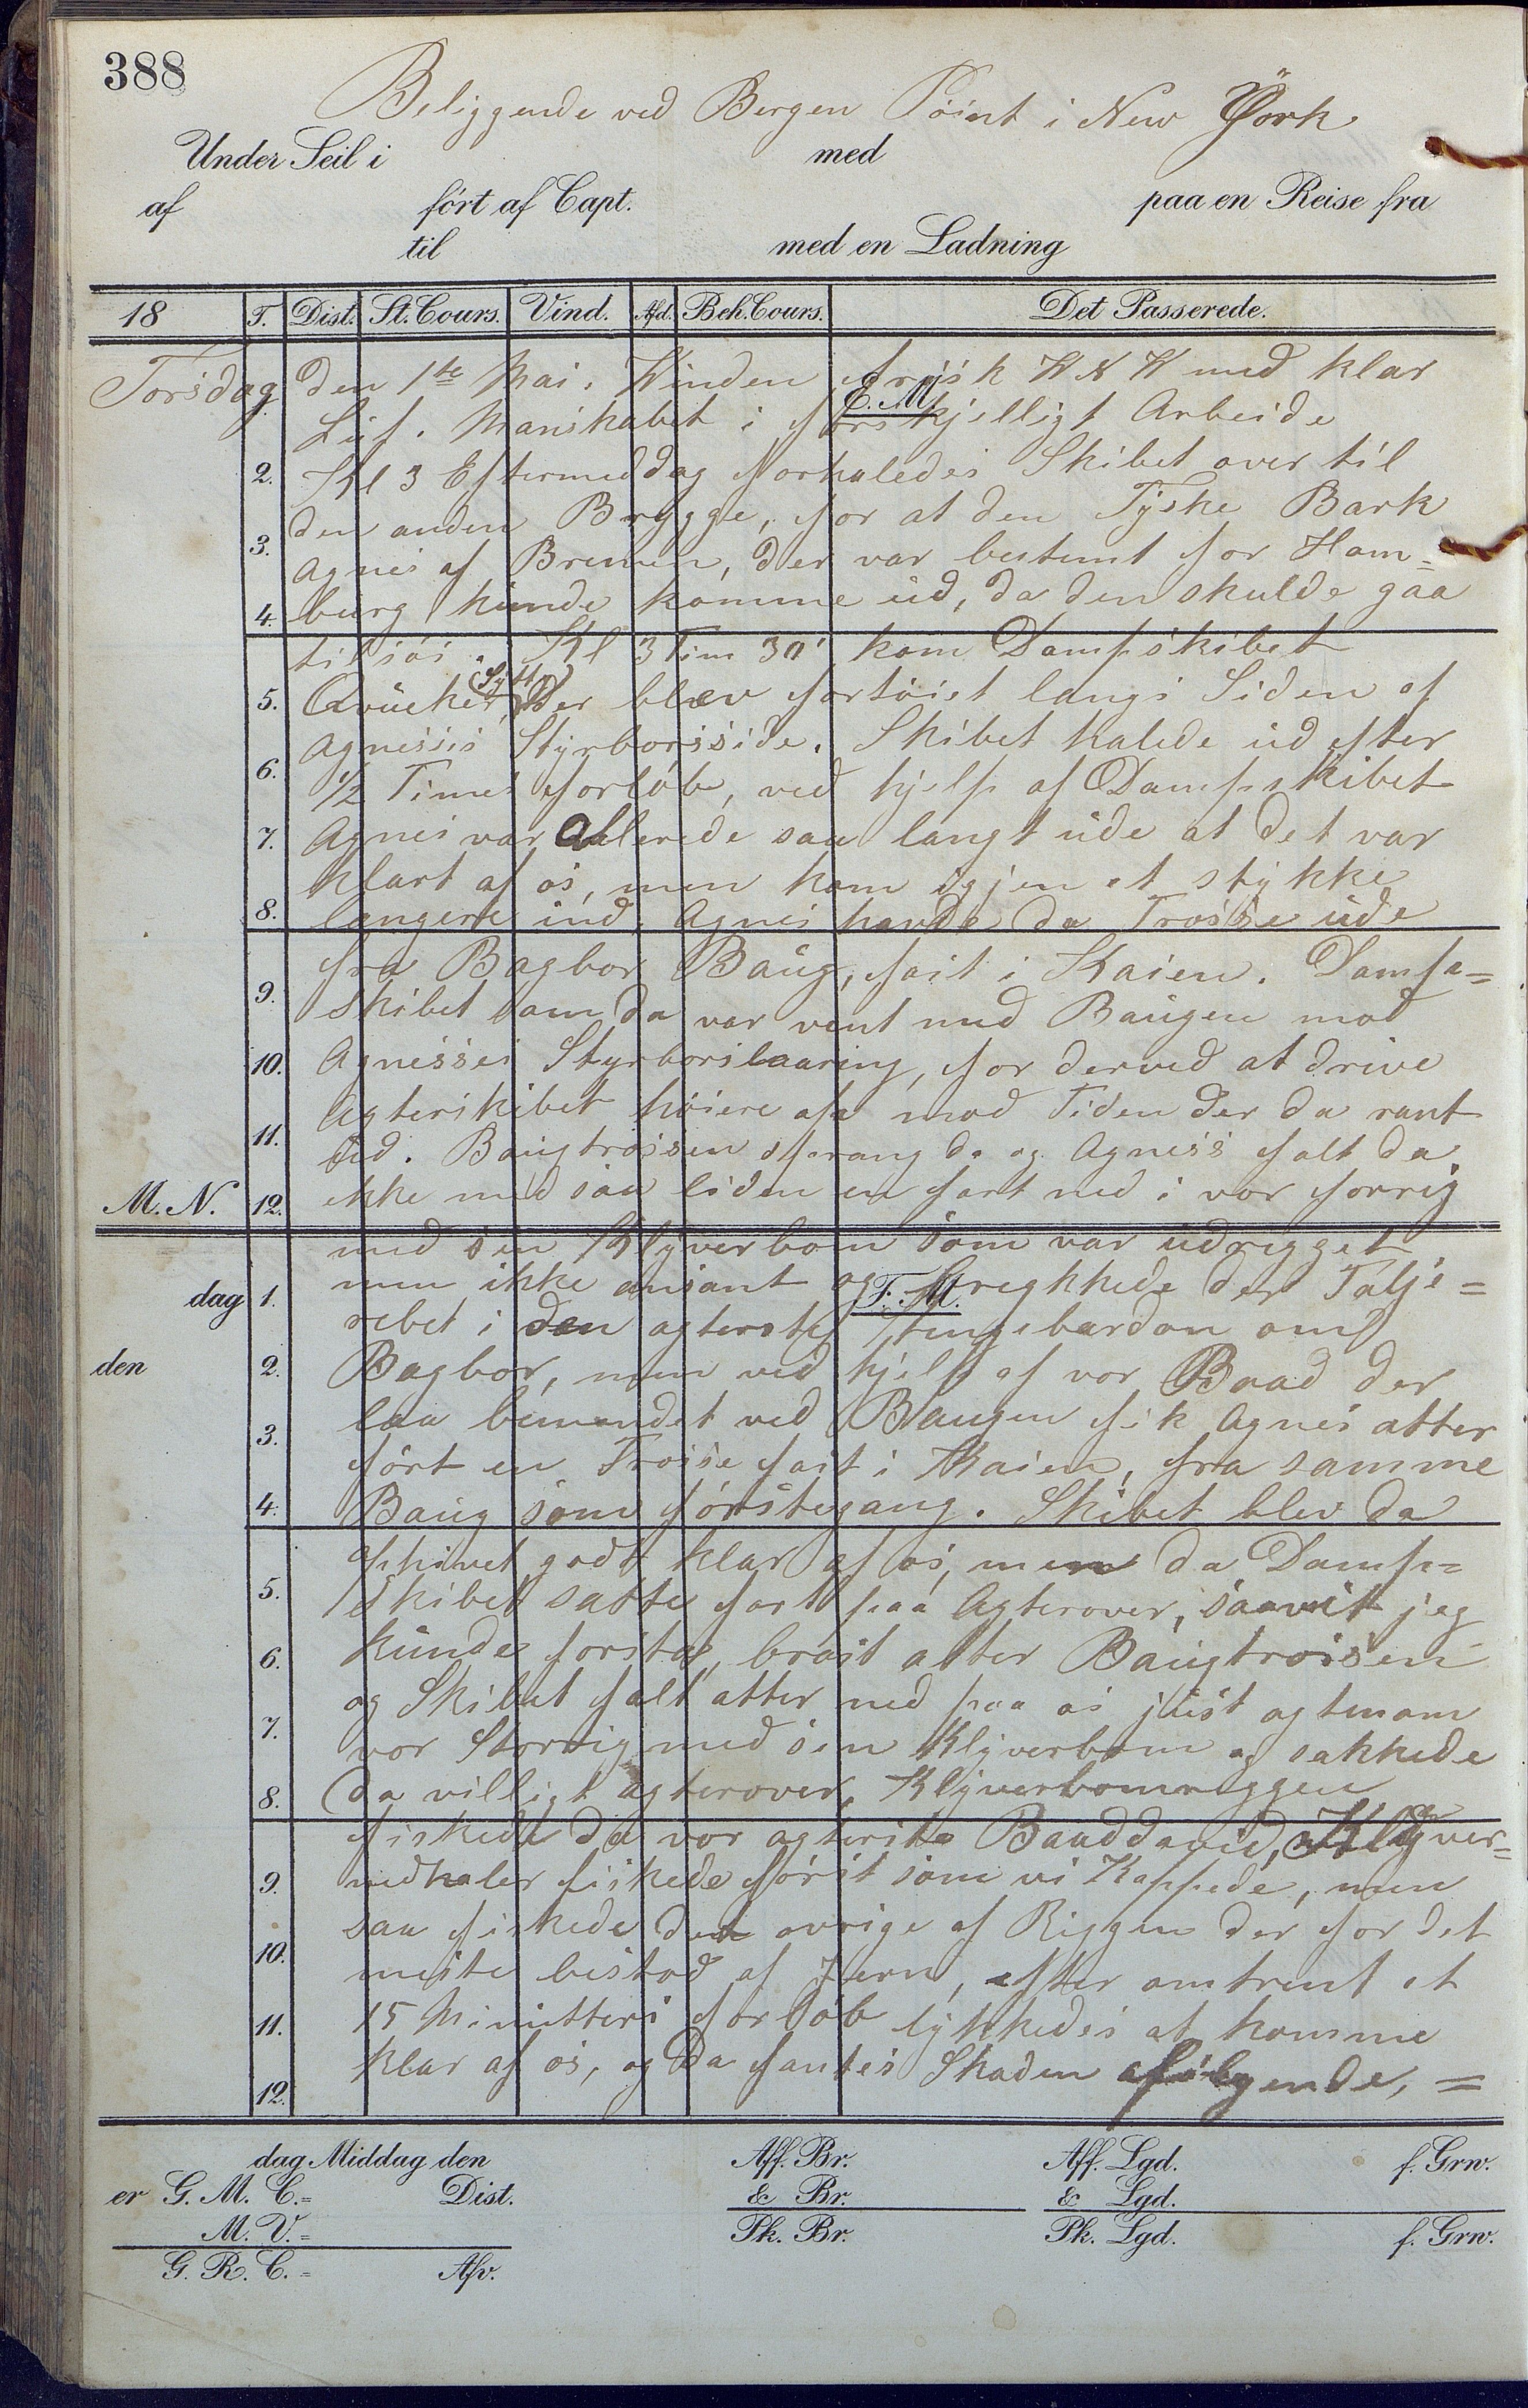 388
Beliggende ved Bergen Point i New York
Under Seil i med
af fört af Capt. paa en Reise fra
til med en Ladning
18 T. Dist. St. Cours. Vind. Afd. Beh. Cours. Det Passerede.
Torsdag den 1te Mai. Winden frisk WNW med klar
E. M.
Luf. Manskabet i forskjelligt Arbeide
2. Kl 3 Eftermeddag forhaledes Skibet over til
den anden Brygge, for at den Tyske Bark
3. Agnes af Bremen, der var bestemt for Ham=
4. burg kunde komme ud, da den skulde gaa
tilsjøs. Kl 3 Tim 30' kom Dampskibet
5. der blev fortöiet langs Siden af
Agnesses Styrborsside. Skibet halede ud efter
6. 1/2 Times forlöb, ved hjelp af Dampskibet
7. Agnes var allerede saa langt ude at det var
klart af os, men kom igjen et stykke
8. langere ind. Agnes havde da Trosse ude
fra Bagbor Baug, fast i Kaien. Damp=
9. skibet som da var vent med Baugen mod
10. Agnesses Styrborslaaring, for derved at drive
Agterskibet höiere op mod Tiden der da rant
11. ud. Baugtrossen sprang da og Agnes falt da
M. N. 12. ikke med saa liden en fart ned i vor forrig
med sin Klyverbom som var udrigget
dag 1. men ikke ansant og F. M. knekkede der Talje=
rebet i den agterste Stengebardon om
den 2. Bagbor, men ved hjelp af vor Baad der
3. laa bemandet ved Baugen fik Agnes atter
fört en Trosse fast i Kaien, fra samme
4. Baug som förstegang. Skibet blev da
ophivet godt klar af os, men da Damp=
5. skibet satte fart paa Agterover, saavit jeg
6. kunde forstaa, brast atter Baugtrossen
og Skibet falt atter ned paa os just agtenom
7. vor Storrig med sin Klyverbom og sakkede
8. da villigt agterover, Klyverbomriggen
fiskede da vor agterste Baaddavid, Klyver=
9. nedhaler fiskede först som vi Kappede, men
saa fiskede det ovrige af Riggen der for det
10. meste bestod af Jern, efter omtrent et
11. 15 Minutters forlöb lykkedes at komme
klar af os, og da fantes Skaden afölgende, =
12.
dag Middag den Aff. Br. Aff. Lgd. f. Grw.
er G. M. C.= Dist. & Br. & Lgd.
M. V.= Pk. Br. Pk. Lgd. f. Grw.
G. R. C.= Afv.